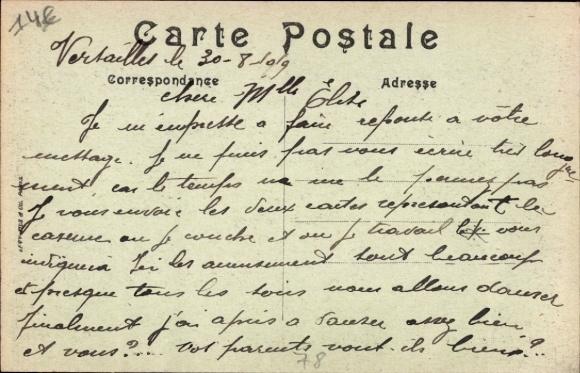 14€
Carte Postale
Versailles le 30-8-1919
Correspondance
Adresse
chère Mlle Elise
Je m'empresse a faire reponse a vôtre
message. Je ne puis pas vous écrire très longue
ment, car le temps ne me le permez pas
Je vous envoie les deux cartes representant la
caserne ou je couche et ou je travail vous
Ici les amusement sont beaucoup
et presque tous les soirs nous allons danser
finalement j'ai apris a danser assez bien
et vous?... vos parents vont-ils bien?..
78